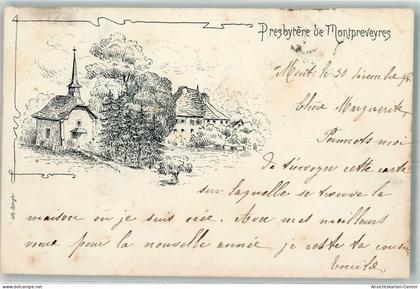 Presbytère de Montpreveyres
Mont. le 30 Décembre 98
Chère Marguerite,
Permets moi
de t'envoyer cette carte
sur laquelle se trouve la
maison où je suis née. Avec mes meilleurs
voeux pour la nouvelle année je reste ta cousine
Ansichtskarten-Center